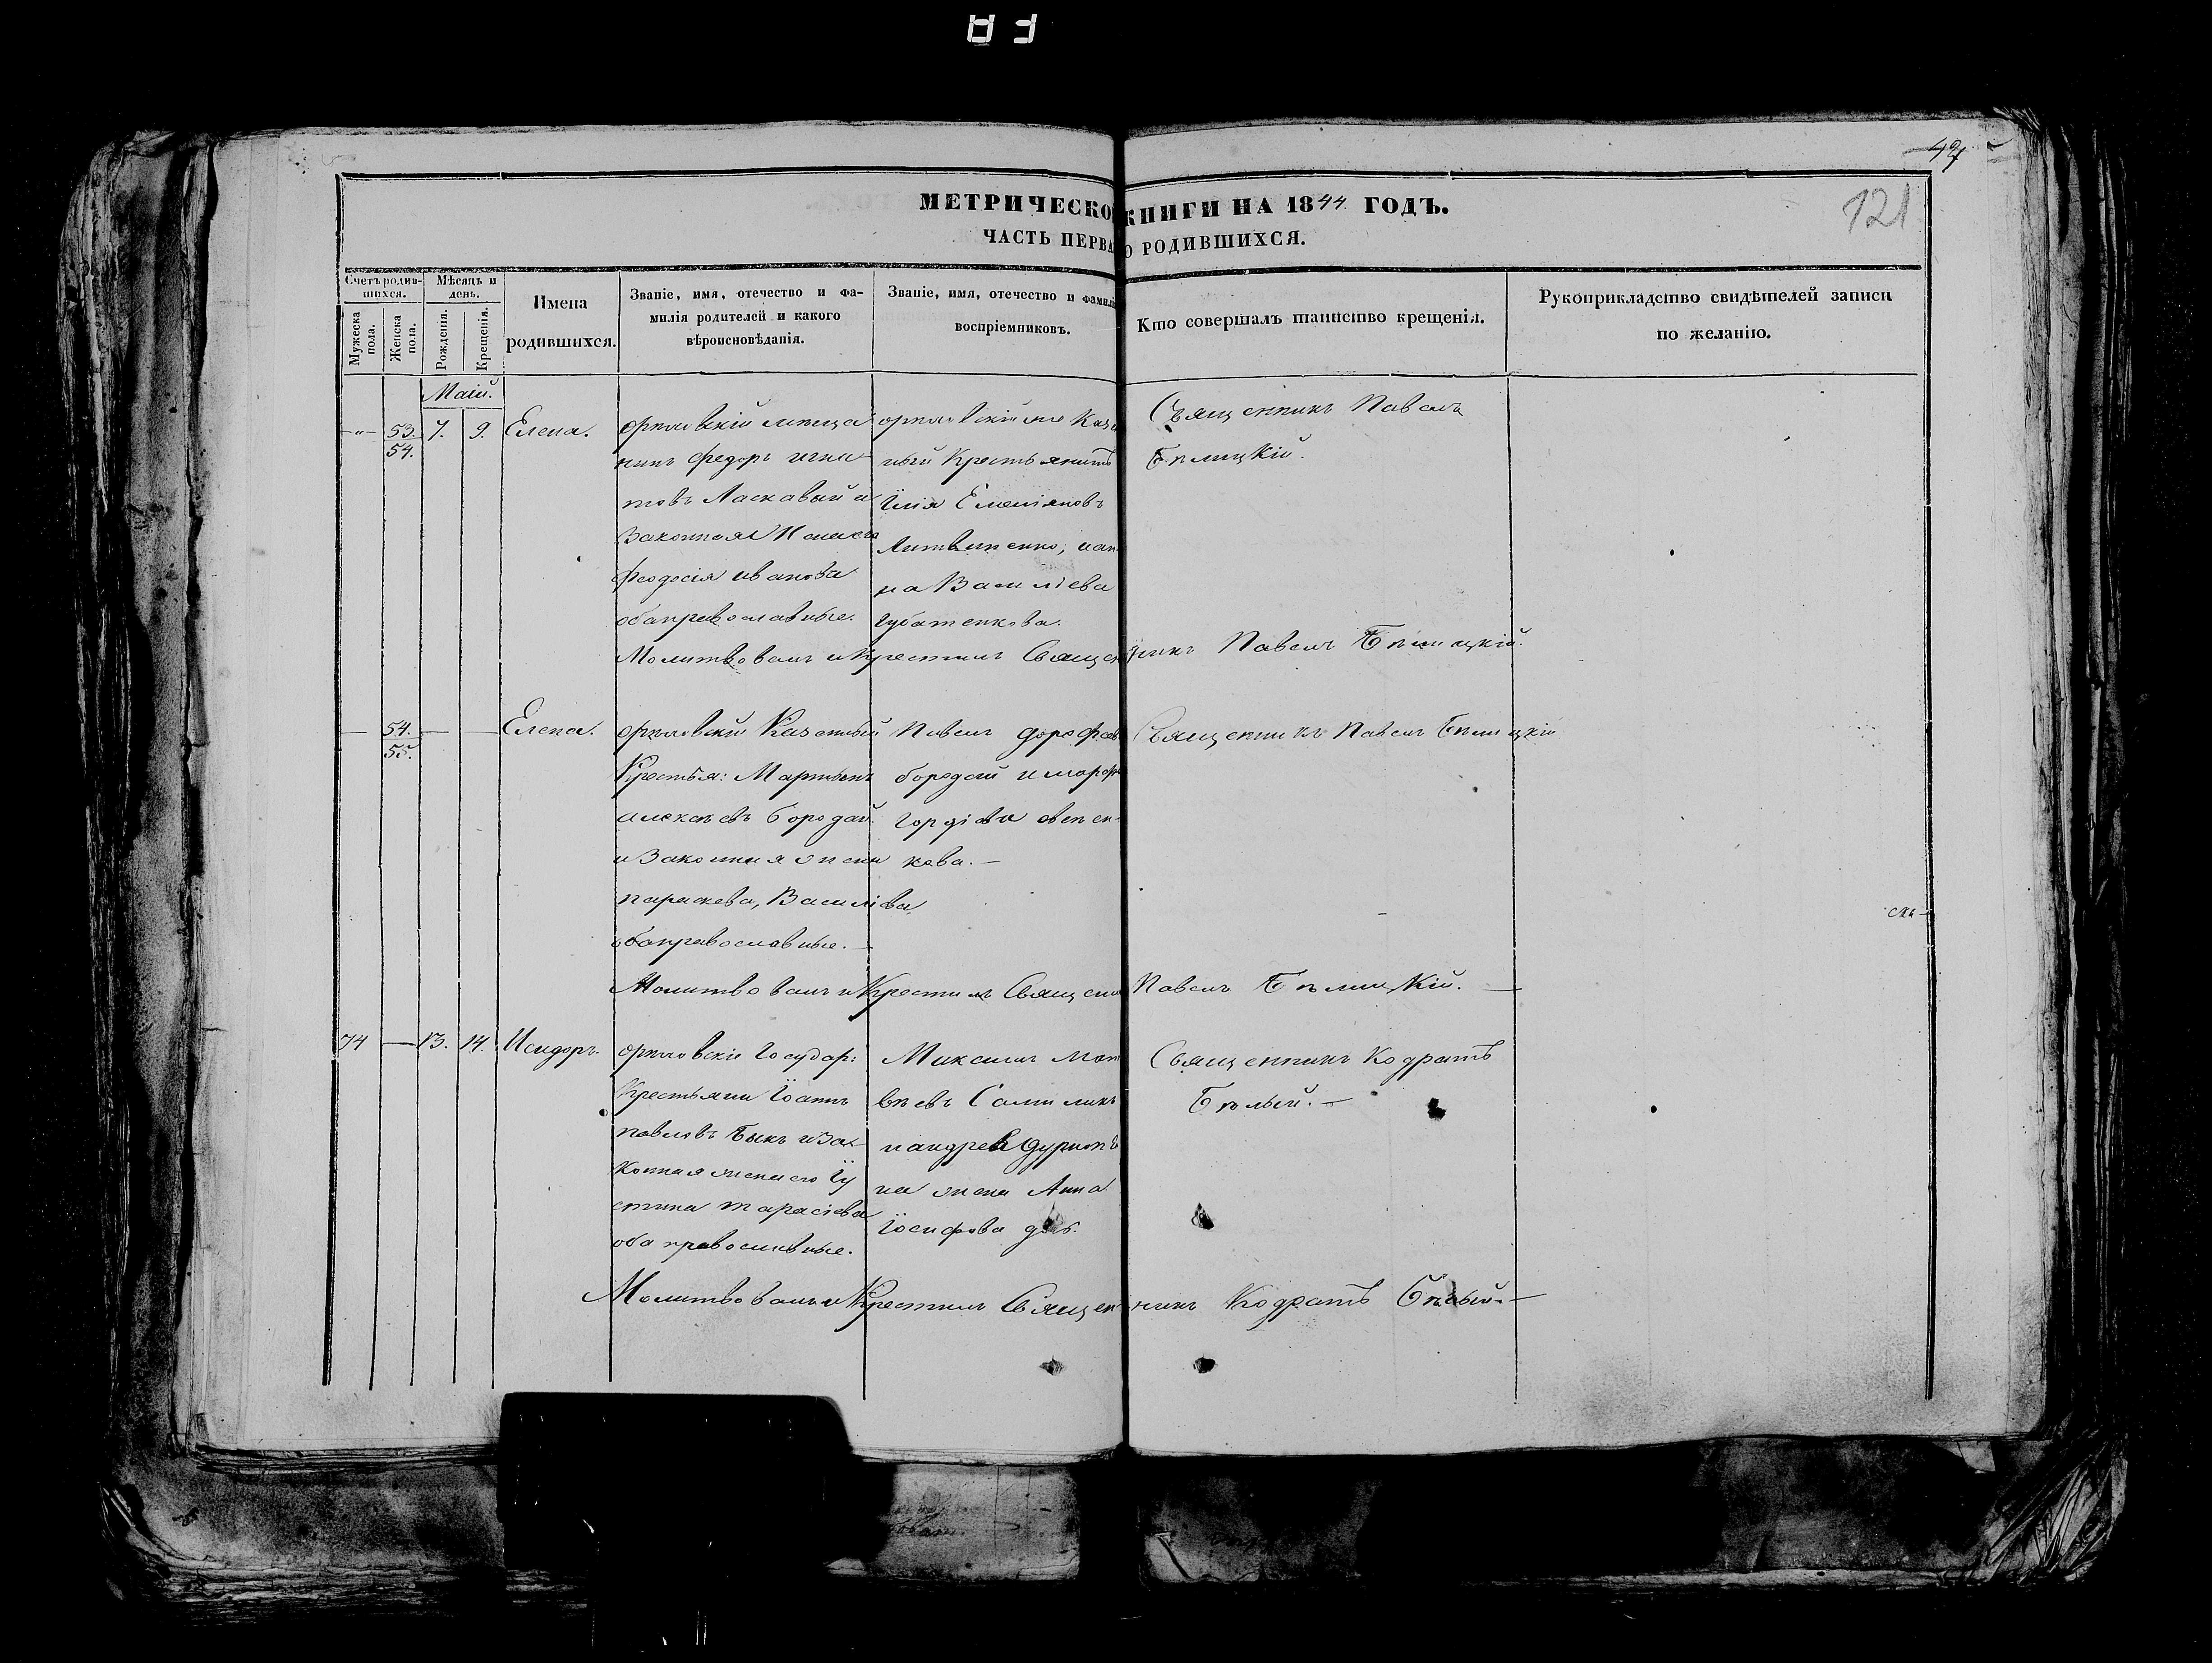 83
42
121
МЕТРИЧЕСКО КНИГИ НА 1844. ГОДЪ.
ЧАСТЬ ПЕРВА О РОДИВШИХСЯ.
Счетъ родив-
шихся.
Мужеска пола.
Женска пола.
Мѣсяцъ и
день.
Рожденія.
Крещенія.
Имена
родившихся.
Званіе, имя, отечество и фа-
милія родителей и какого
вѣроисповѣданія.
Званіе, имя, отечество и фамилі
воспріемниковъ.
Кто совершалъ таинство крещенія.
Рукоприкладство свидѣтелей записи
по желанію.
Маій.
53. 7. 9. Елена.
54.
орѣловскій мѣща
нинъ федоръ игна
товъ Ласкавый и
Законная жена его
феодосія иванова
оба православные.
орѣловскій же Каз
ный Крестьянинъ
Илія Емеліяновъ
Литвиненко; и ан
на Василіева
Губатенкова.
Священникъ Павелъ
Бѣлицкій.
Молитвовалъ и Крестилъ Священникъ Павелъ Бѣлицкій.
54. Елена.
55.
орѣловскій Казенный
Крестья: Мартынъ
алексѣевъ бородай
и Законная жена
параскева, Василіева
оба православные.
Павелъ дорофеев
бородай и марф
Гордіева
кова.
Священникъ Павелъ Бѣлицкій
ск
Молитвовалъ и Крестилъ Священ Павелъ Бѣлицкій.
74 13. 14. Исидоръ.
орѣловскій Государ:
Крестьяни Іоаннъ
павловъ Быкъ и За-
конная жена его Іу
стина тарасіева
оба православные.
Максимъ Мат
вѣевъ Салтиликъ
и андрея
на жена Анна
Іосифова
Священникъ Кодратъ
Бѣлый.
Молитвовалъ и Крестилъ Священникъ Кодратъ Бѣлый.